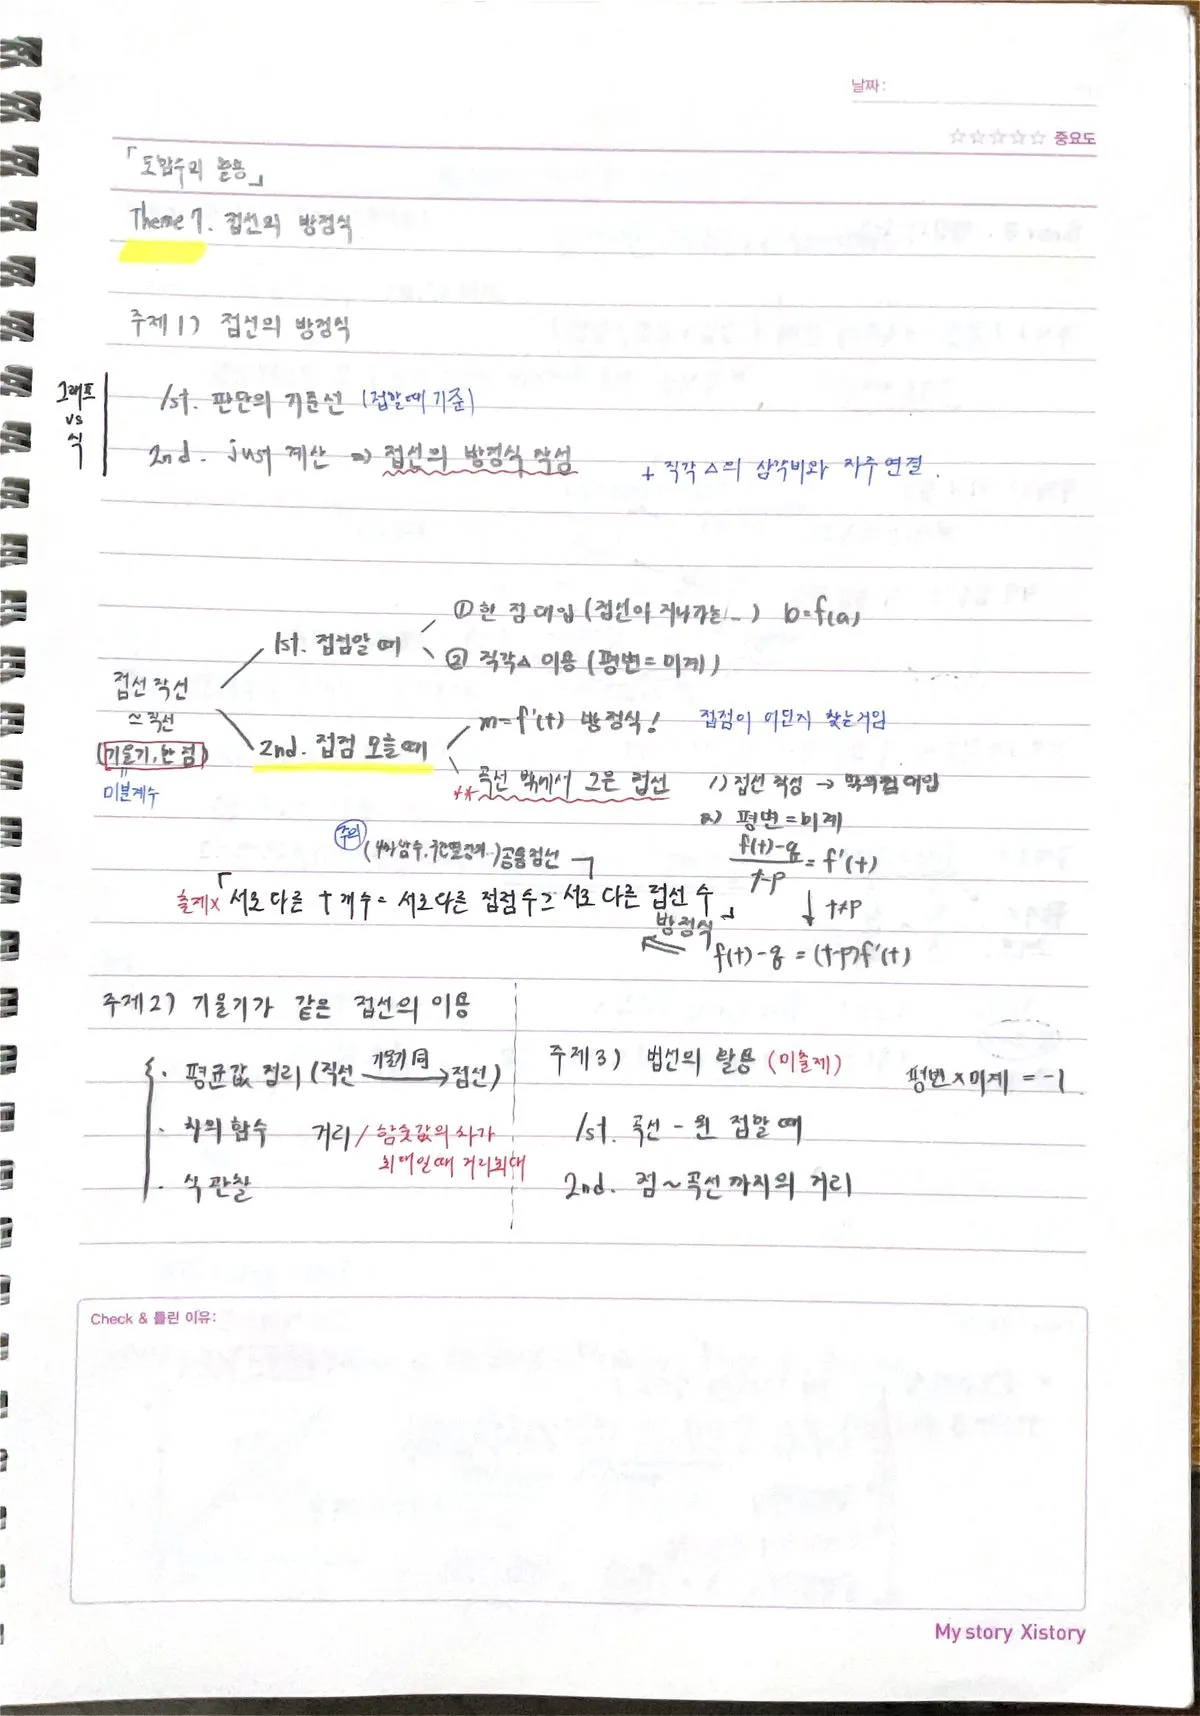 날짜:
☆☆☆☆☆ 중요도
「도함수의 활용」
Theme 7. 접선의 방정식
주제 1) 접선의 방정식
그래프 vs 식
1st. 판단의 기준선 (접할때 기준)
2nd. just 계산 ⇒ 접선의 방정식 작성
+ 직각△의 삼각비와 자주 연결.
접선 작성
≃ 직선
(기울기, 한 점)
미분계수
1st. 접점알 때
① 한 점 대입 (접선이 지나가는...) b=f(a)
② 직각△ 이용 (평변=미계)
2nd. 접점 모를때
m=f'(t) 방정식! 접점이 어딘지 찾는거임
** 곡선 밖에서 그은 접선
1) 접선 작성 → 밖의점 대입
2) 평변=미계
(f(t)-q)/(t-p) = f'(t)
↓ t≠p
f(t)-q = (t-p)f'(t)
방정식
주의 (4차함수, 구간별강의..)공통접선
출제x 「서로 다른 t 개수 = 서로 다른 접점 수 ≥ 서로 다른 접선 수」
주제 2) 기울기가 같은 접선의 이용
· 평균값 정리 (직선 기울기 同→ 접선)
· 차의 함수 거리 / 함숫값의 차가
최대일때 거리최대
· 식 관찰
주제 3) 법선의 활용 (미출제)
평변×미계 = -1
1st. 곡선 - 원 접할 때
2nd. 점~곡선까지의 거리
Check & 틀린 이유:
My story Xistory